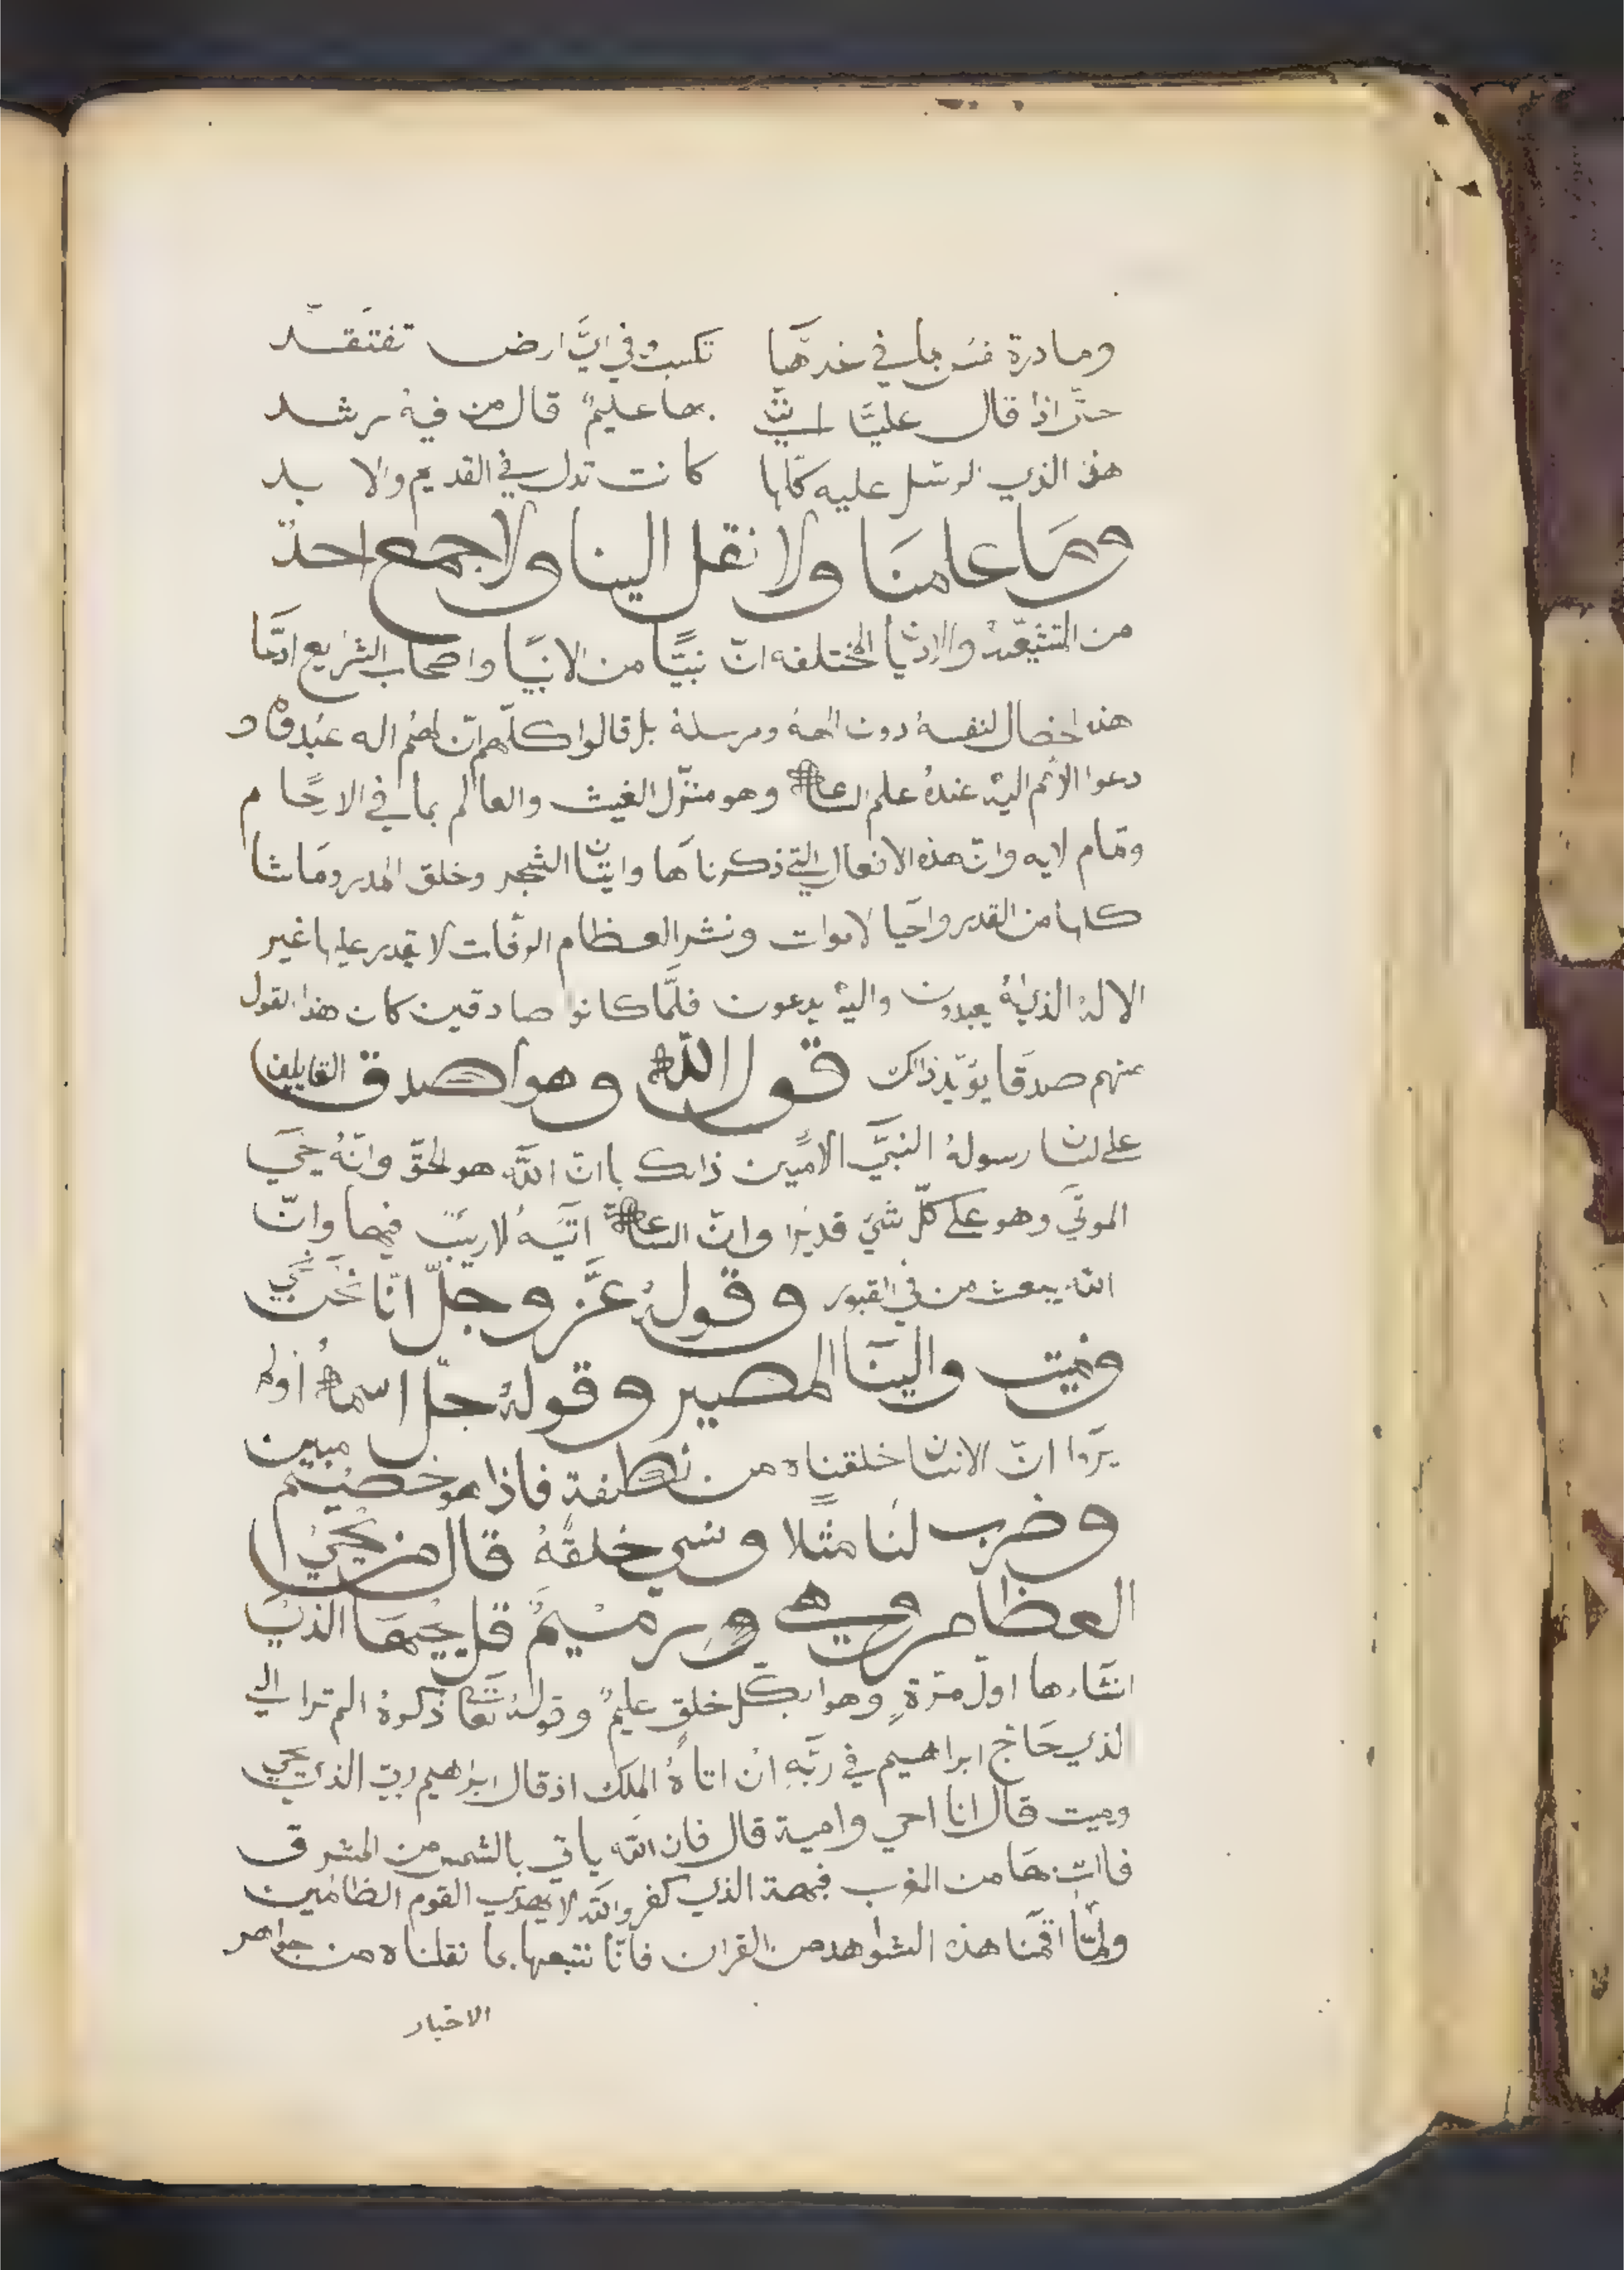 وما درة نفس بما في غدها تكسب وفي اي ارض تفتقد
حتى اذا قال عليا بها عليم قال من فيه رشد
هذا الذي الرسل عليه كلها كانت تدل في القديم والا بد
وما علمنا ولا نقل الينا ولا جمع احد
من والاديا المختلفه ان نبيا من الانبيا واصحاب الشرايع ادعا
هذه اخصال لنفسه دون الهه ومرسله بل قالوا كلهم ان لهم اله عبدوه و
دعوا الامم اليه عنده علم الساعة وهو منزل الغيث والعالم بما في الارحام
وتمام لايه وان هذه الافعال التي ذكرناها وايتان الشجر وخلق المدر وما شا
كلها من القدر واحيا لاموات ونشر العظام الرفات لا يقدر عليها غير
الاله الذي له يعبدون واليه يدعون فلما كانوا صادقين كان هذا القول
عنهم صدقا يؤيد ذالك قول الله وهو اصدق القايلين
على لسان رسوله النبي الامين ذالك باان الله هو الحق وانه يحي
الموتي وهو على كل شي قديرا وان الساعة اتيه لا ريب فيها وان
الله يبعث من في القبور وقوله عز وجل انا نحن نحيي
ونميت والينا المصير وقوله جل اسمه اولم
يروا ان الانسان خلقناه من نطفة فاذا هو خصيم مبين
وضرب لنا مثلا ونسي خلقه قال من يحي
العظام وهي رميم قل يحيها الذي
انشاءها اول مرة وهو ابكل خلق عليم وقوله تعا ذكره الم ترا الي
لذي حاج ابراهيم في ربه ان اتاه الملك اذ قال ابراهيم ربي الذي يحيي
وميت قال انا احي وامية قال فان الله ياتي بالشمس من المشرق
فاات بها من الغرب فبهت الذي كفر والله لا يهدي القوم الظالمين
ولما اقمنا هذه الشواهد من القران فانا نتبعها بما نقلناه من جواهر
الاخبار